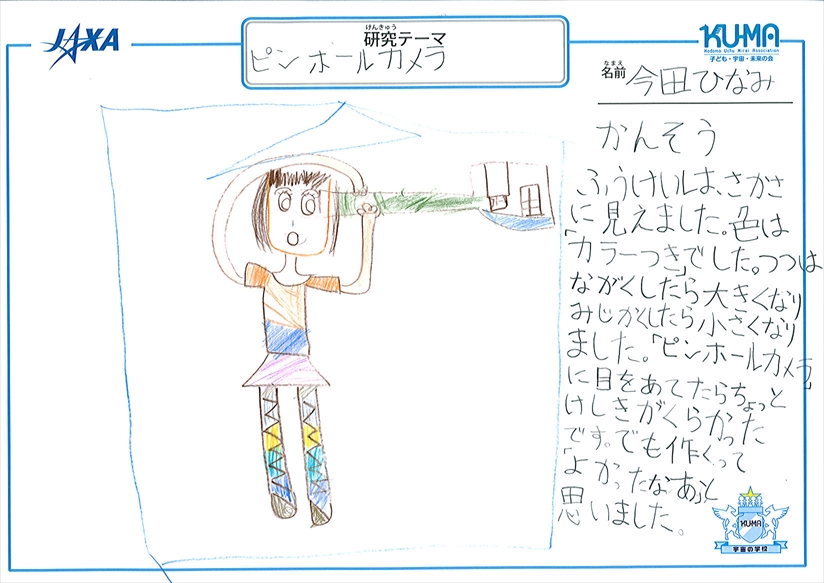 JAXA
けんきゅう
研究テーマ
ピンホールカメラ
KU-MA
Kodomo Uchu Mirai Association
子ども・宇宙・未来の会
なまえ
名前 今田ひなみ
かんそう
ふうけいは、さかさ
に見えました。色は
「カラーつき」でした。つつは
ながくしたら大きくなり
みじかくしたら小さくなり
ました。「ピンホールカメラ」
に目をあてたらちょっと
けしきがくらかった
です。でも作くって
「よかったなあ」と
思いました。
KU-MA
宇宙の学校